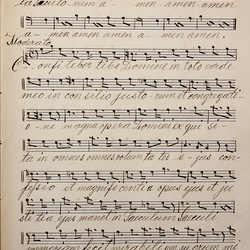 ta saeculorum a - men amen amen
a - men amen amen a - men amen.
Moderato
Confitebor Tibi Domine in toto corde
meo in consilio justorum et congregati -
o - ne magna opera Domini ex qui si -
ta in omnes omnes voluntates e - jus con
fessio et magnificentia opus ejus et ju
sti tia ejus manet in saeculum saeculi
memoriam fecit mirabilium suorum